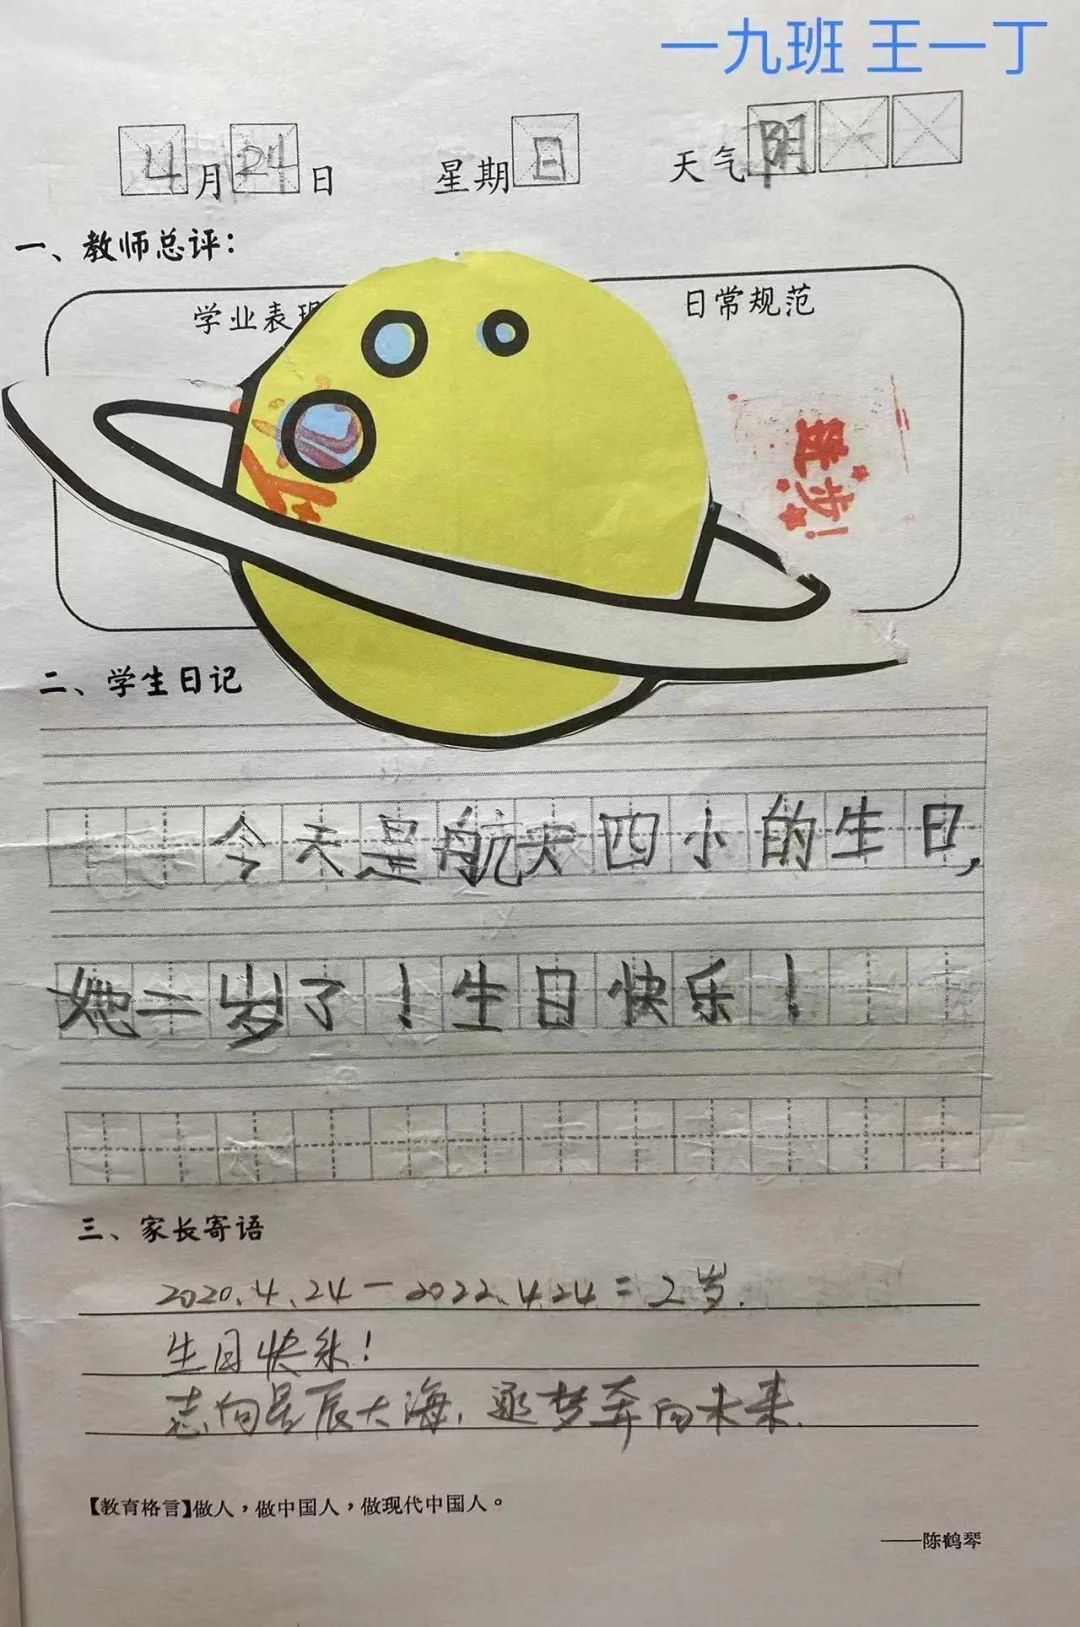 一九班 王一丁
4月24日 星期日 天气阴
一、教师总评：
学业表现 日常规范
进步！
二、学生日记
今天是航天四小的生日，
她二岁了！生日快乐！
三、家长寄语
2020.4.24—2022.4.24=2岁.
生日快乐！
志向星辰大海，逐梦奔向未来.
【教育格言】做人，做中国人，做现代中国人。
——陈鹤琴